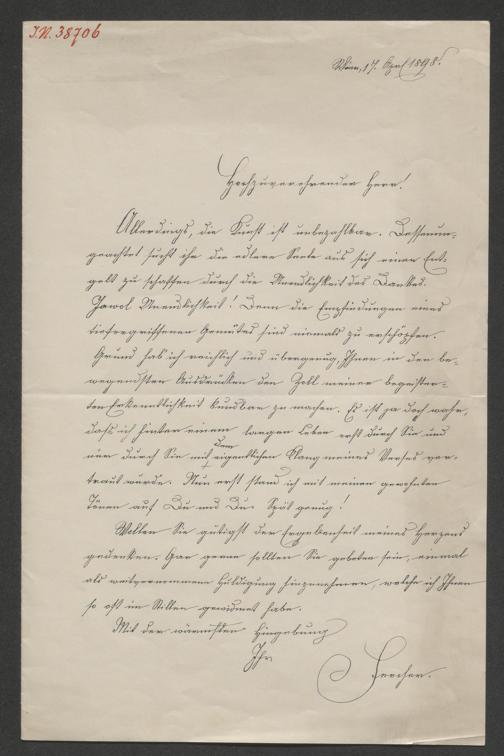 I.N. 38706
Wien, 17. April 1898.
Hochzuverehrender Herr!
Allerdings, die Kunst ist unbezahlbar. Dessenun-
geachtet sucht ihr die edlere Seele aus sich einen Ent-
gelt zu schaffen durch die Unendlichkeit des Dankes.
Jawol Unendlichkeit! Denn die Empfindungen eines
tiefergriffenen Gemütes sind niemals zu erschöpfen.
Grund hab' ich reichlich und übergenug, Ihnen in den be-
wegendsten Ausdrücken den Zoll meiner begeister-
ten Erkenntlichkeit kundbar zu machen. Es ist ja doch wahr,
daß ich hinter einem langen Leben erst durch Sie und
nur durch Sie mit dem eigentlichen Klang meines Verses ver-
traut wurde. Nun erst stand ich mit meinen gereihten
Tönen auf Du und Du. Spät genug!
Wollen Sie gütigst der Ergebenheit meines Herzens
gedenken. Gar gerne sollten Sie gebeten sein, einmal
als weitvernommene Huldigung hinzunehmen, welche ich Ihnen
so oft im Stillen gewidmet habe.
Mit der wärmsten Hingebung
Ihr
Fercher.